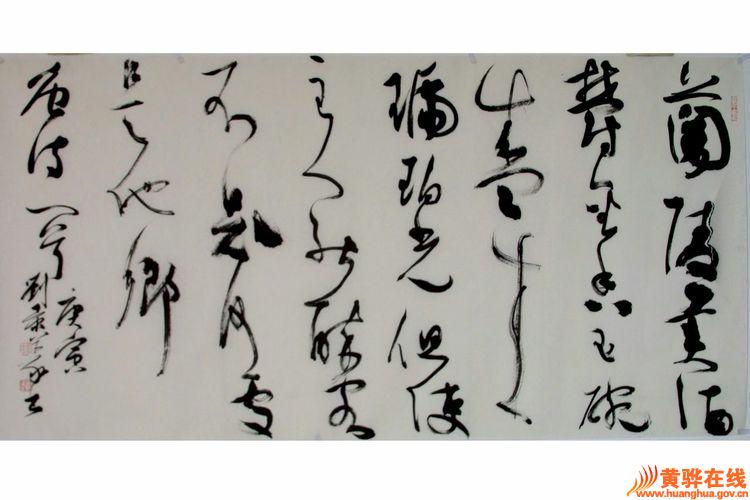 蘭陵美酒
鬱金香玉碗
盛来
琥珀光但使
主人能醉客
不知何處
是他鄉
唐诗一首
庚寅
劉
黄骅在线
www.huanghua.gov.cn